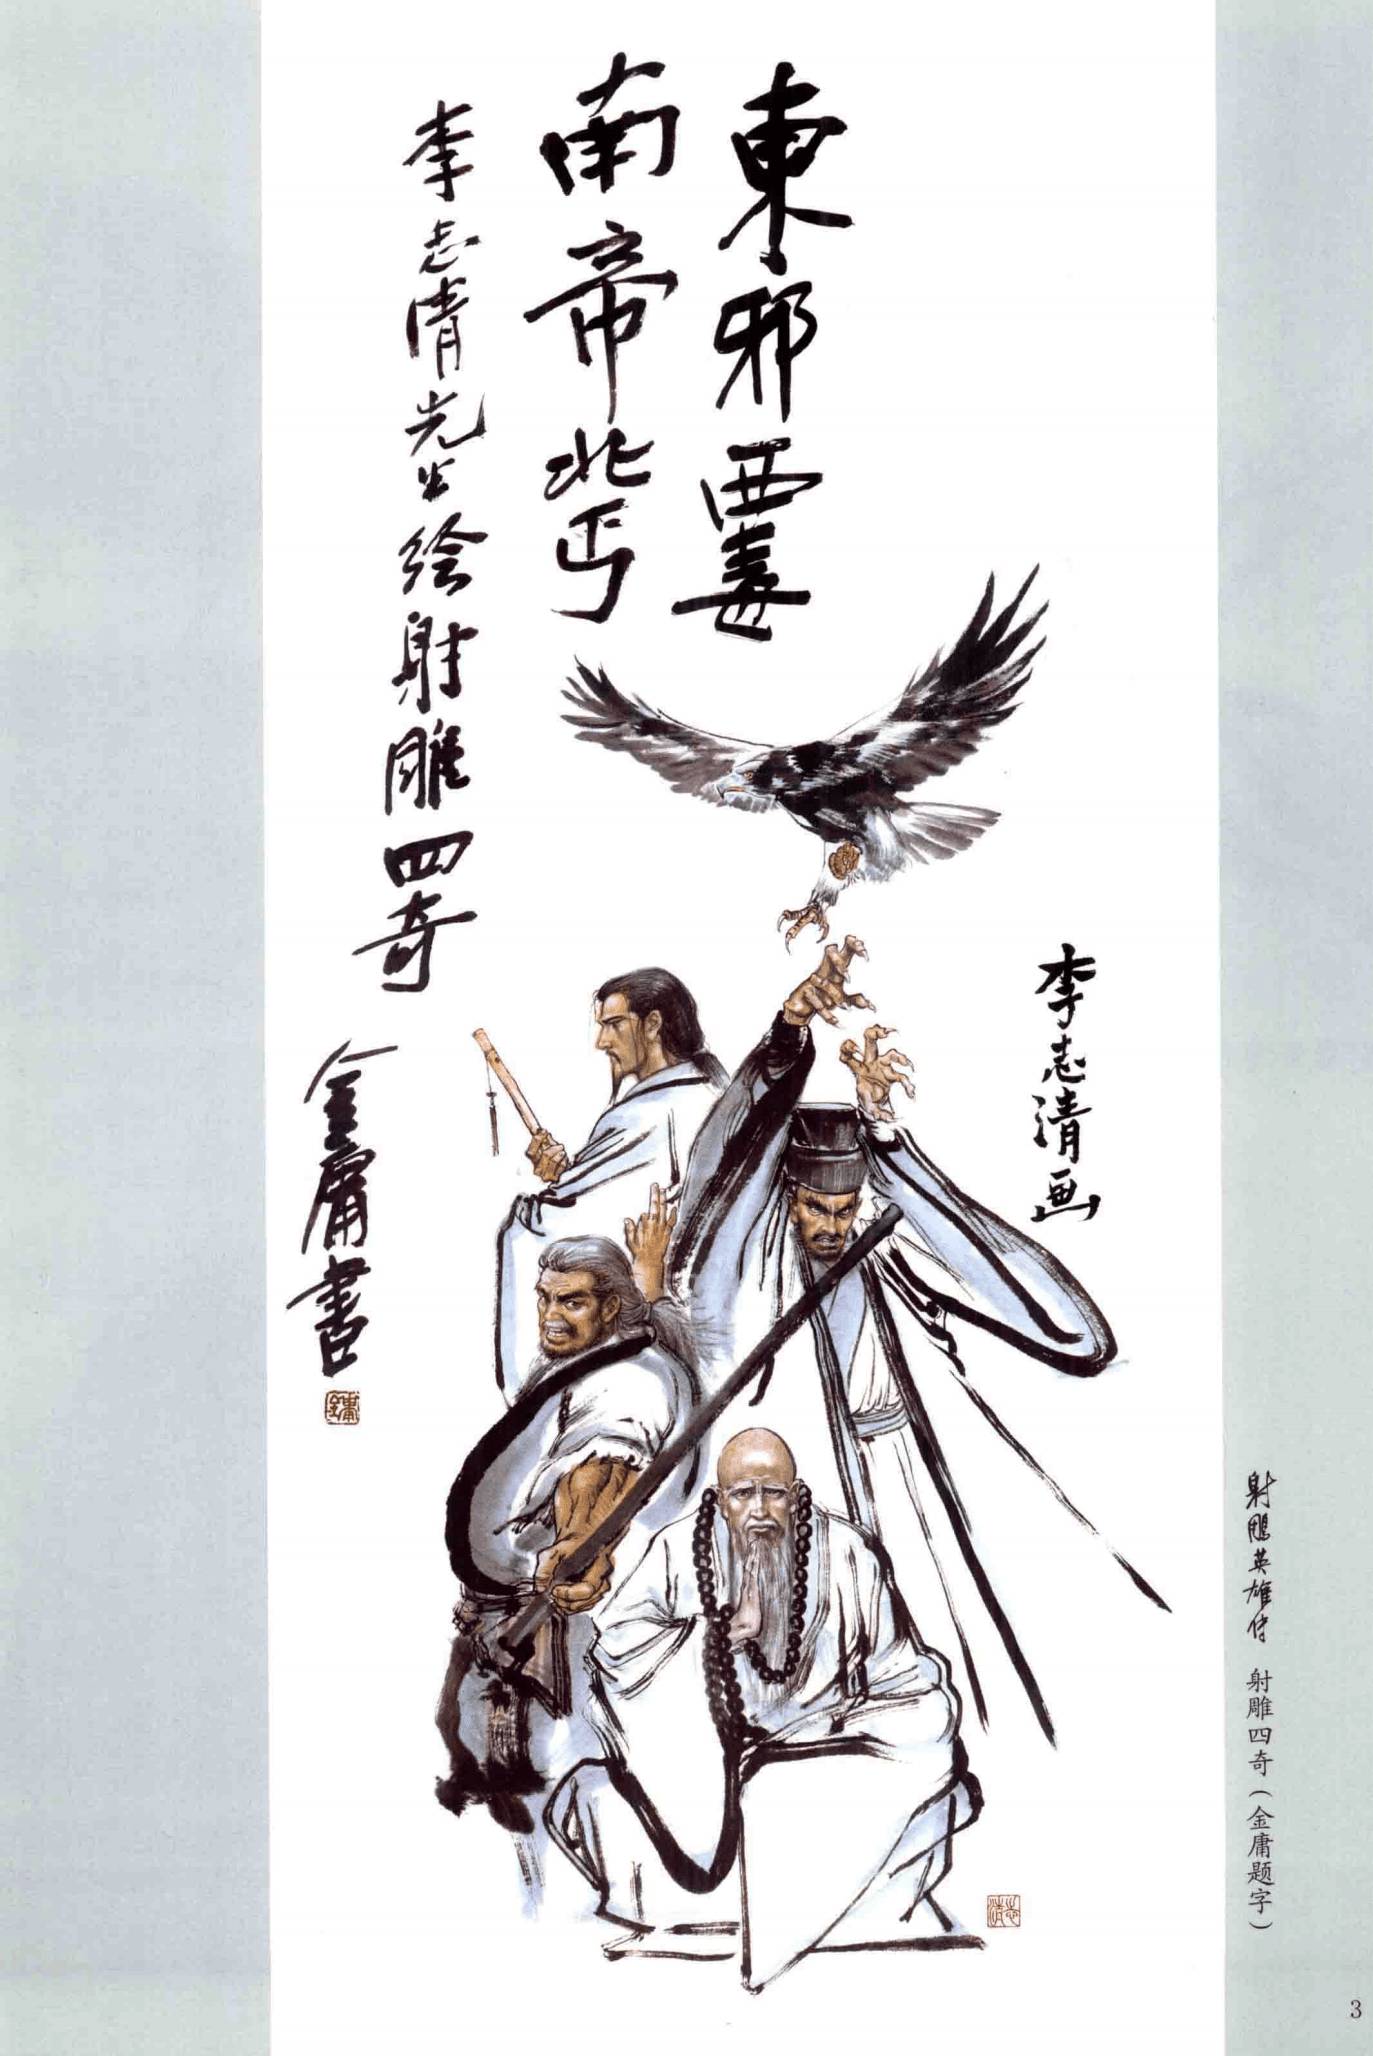 東邪西毒
南帝北丐
李志清先生绘射雕四奇
金庸書
金庸
李志清画
志清
射鵰英雄传 射雕四奇（金庸题字）
3